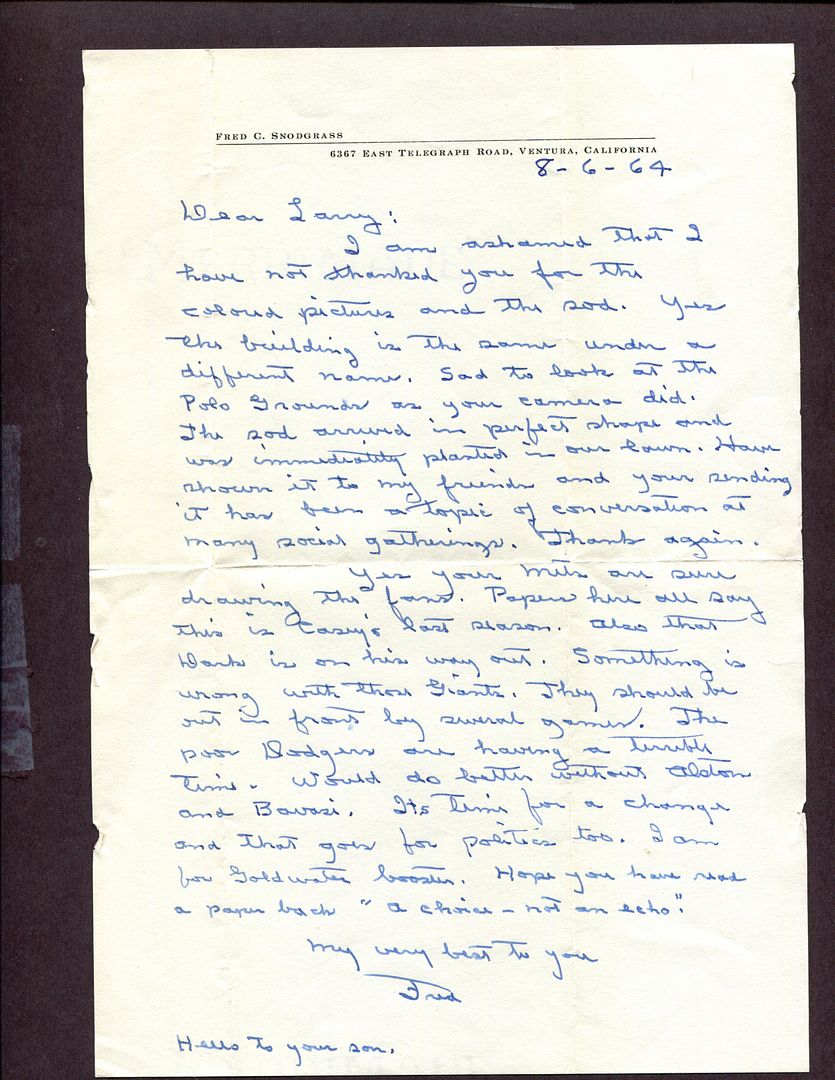 FRED C. SNODGRASS
6367 EAST TELEGRAPH ROAD, VENTURA, CALIFORNIA
8-6-64
Dear Larry:
I am ashamed that I
have not thanked you for the
colored pictures and the sod. Yes
the building is the same under a
different name. Sad to look at the
Polo Grounds as your camera did.
The sod arrived in perfect shape and
was immediately planted in our lawn. Have
shown it to my friends and your sending
it has been a topic of conversation at
many social gatherings. Thank again.
Yes your Mets are sure
drawing the fans. Papers here all say
this is Casey's last season. Also that
Dark is on his way out. Something is
wrong with those Giants. They should be
out in front by several games. The
poor Dodgers are having a terrible
time. Would do better without Alston
and Bavasi. Its time for a change
and that goes for politics too. I am
for Goldwater booster. Hope you have read
a paper back "A choice - not an echo".
My very best to you
Fred
Hello to your son.